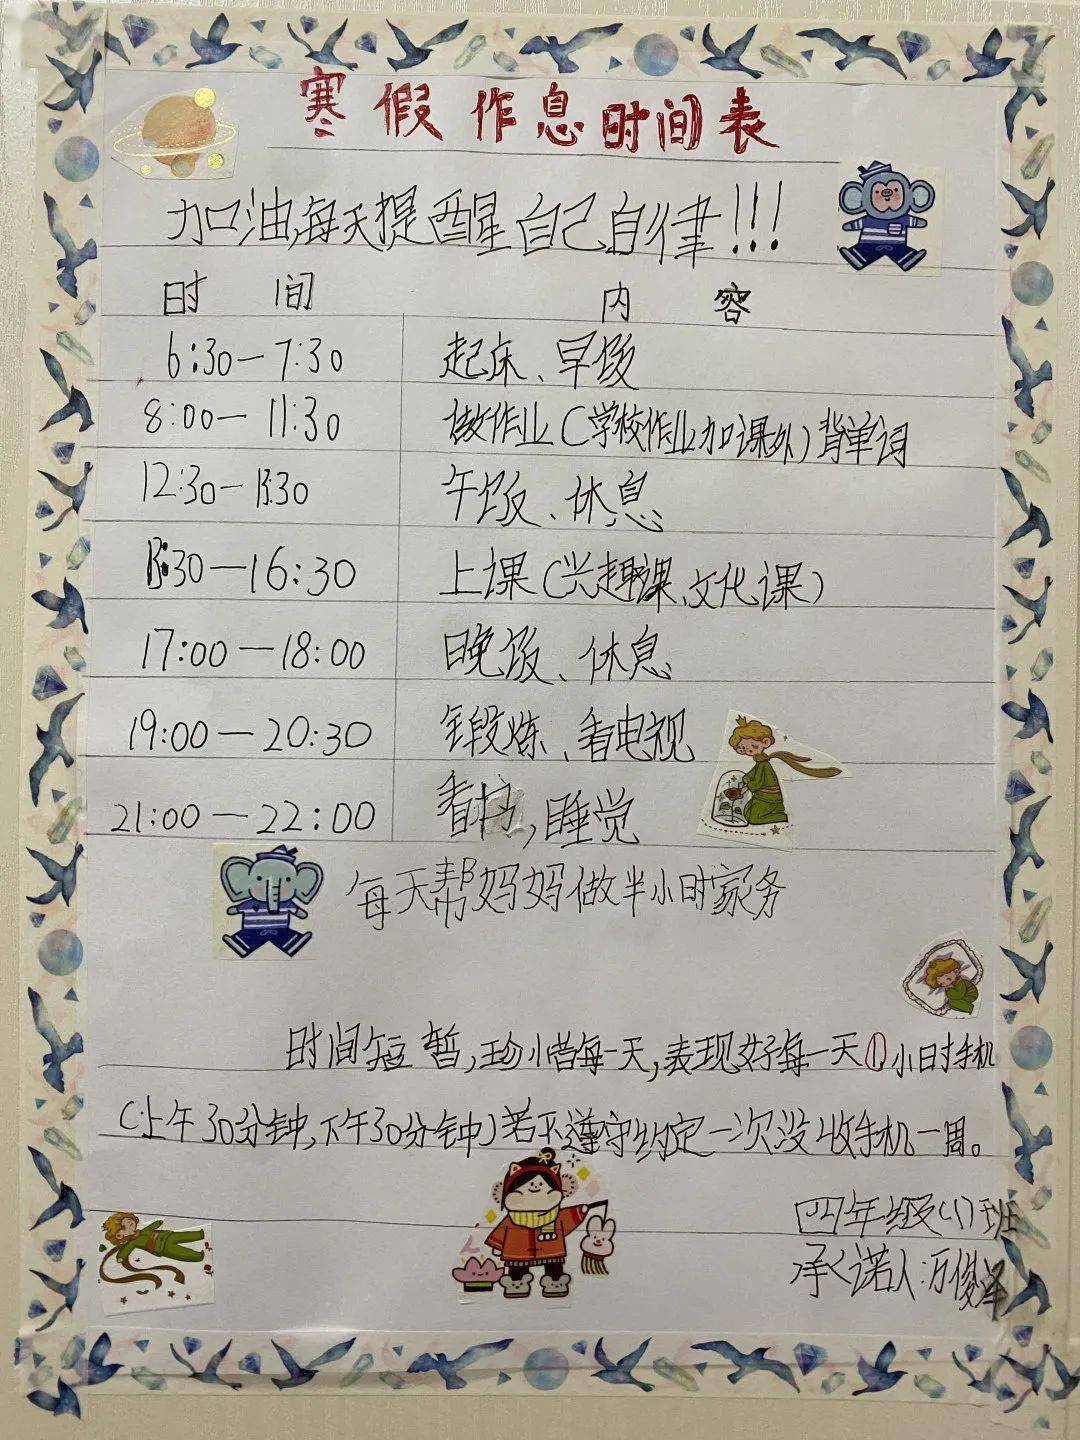 寒假作息时间表
加油,每天提醒自己自律!!!
时 间 内 容
6:30—7:30 起床、早饭
8:00—11:30 做作业(学校作业加课外)背单词
12:30—13:30 午饭、休息
13:30—16:30 上课(兴趣课、文化课)
17:00—18:00 晚饭、休息
19:00—20:30 锻炼、看电视
21:00—22:00 看书,睡觉
每天帮妈妈做半小时家务
时间短暂,珍惜每一天,表现好每一天①小时手机
(上午30分钟,下午30分钟)若不遵守约定一次没收手机一周。
四年级(1)班
承诺人:万俊泽